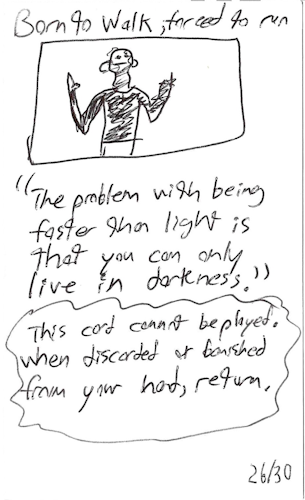 Born to Walk, forced to run
"The problem with being
faster than light is
that you can only
live in darkness."
This card cannot be played.
When discarded or banished
from your hand, return.
26/30